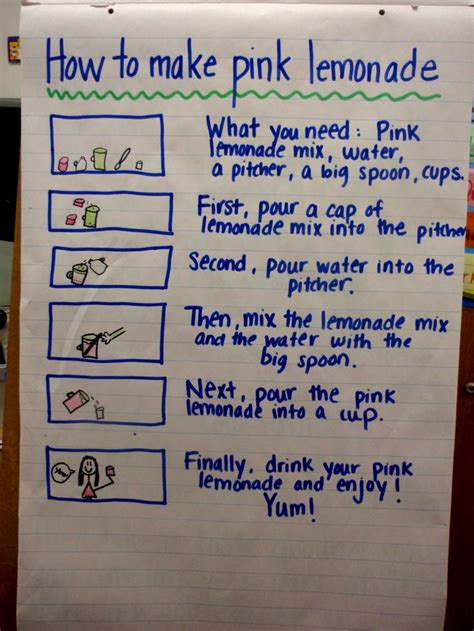 How to make pink lemonade
What you need: Pink
lemonade mix, water,
a pitcher, a big spoon, cups.
First, pour a cap of
lemonade mix into the pitcher
Second, pour water into the
pitcher.
Then, mix the lemonade mix
and the water with the
big spoon.
Next, pour the pink
lemonade into a cup.
Finally, drink your pink
lemonade and enjoy!
Yum!